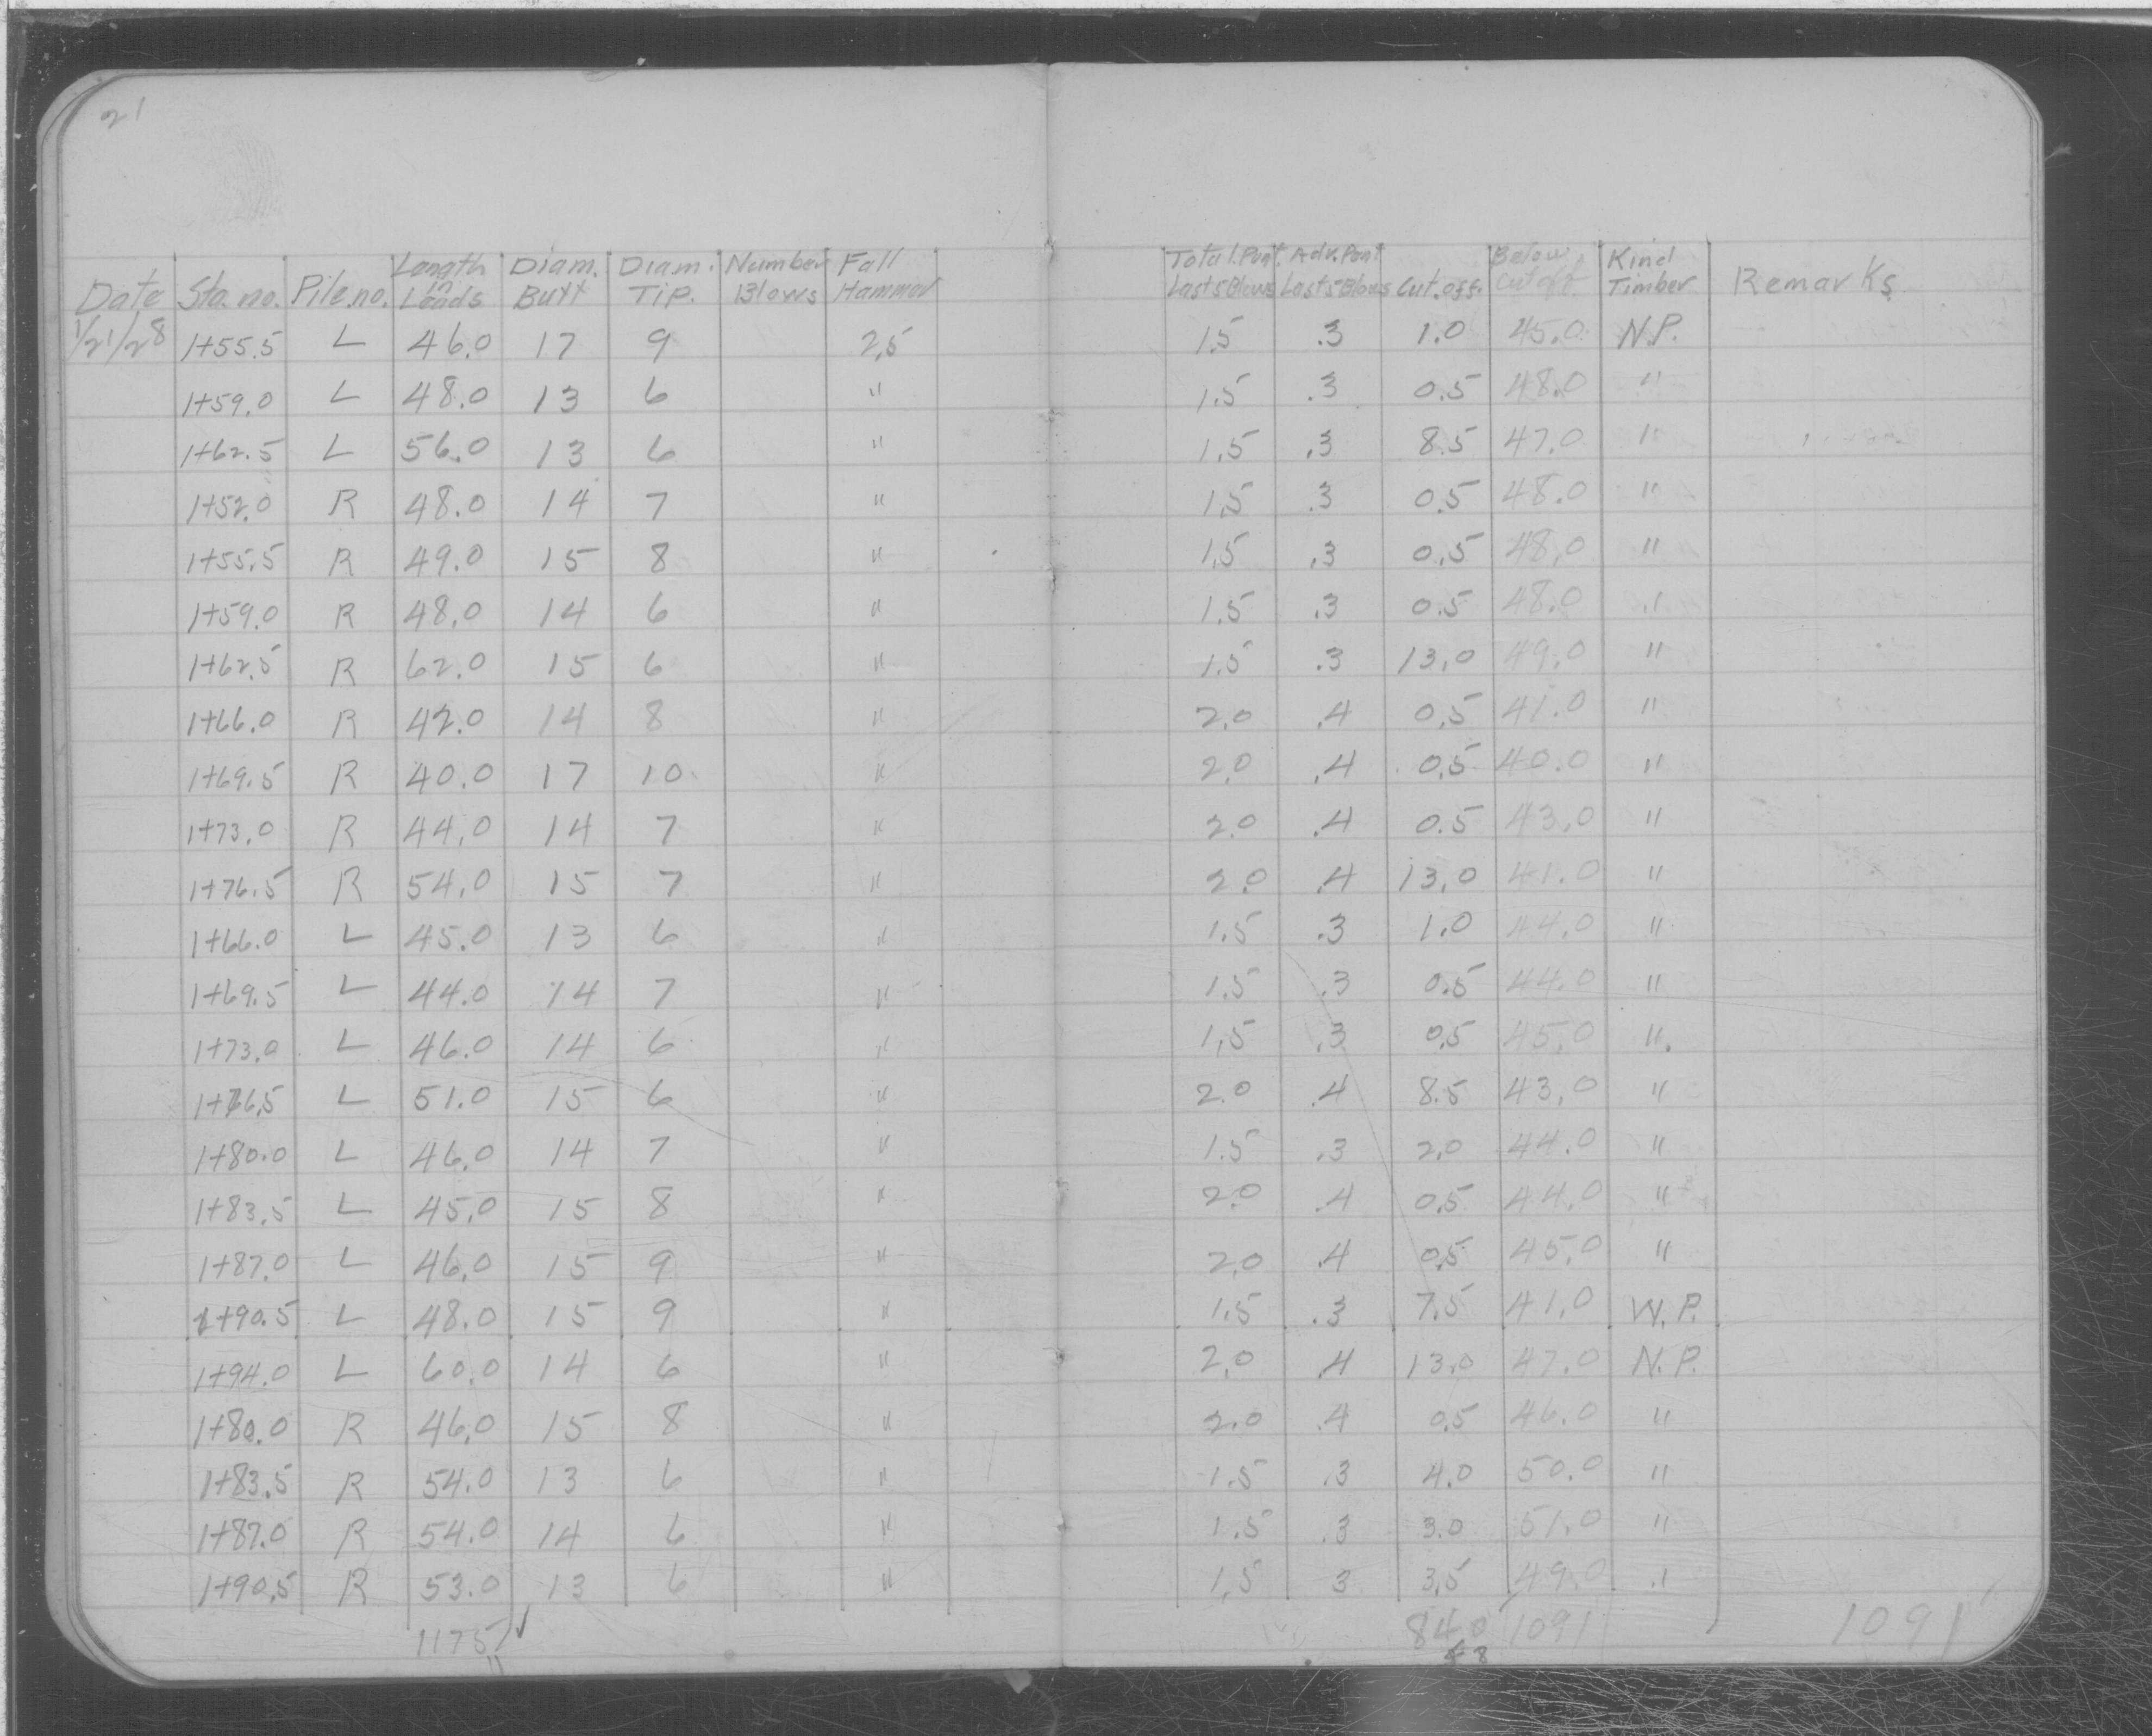 21
Date Sta. no. Pile. no. Length in Leads Diam. Butt Diam. Tip. Number Blows Fall Hammer Total. Pent. Last 5 Blows Adv. Pent Last 5 Blows Cut. off. Below Cut off Kind Timber Remarks
1/21/28 1+55.5 L 46.0 17 9 2.5 1.5 .3 1.0 45.0 N.P.
1+59.0 L 48.0 13 6 " 1.5 .3 0.5 48.0 "
1+62.5 L 56.0 13 6 " 1.5 .3 8.5 47.0 "
1+52.0 R 48.0 14 7 " 1.5 .3 0.5 48.0 "
1+55.5 R 49.0 15 8 " 1.5 .3 0.5 48.0 "
1+59.0 R 48.0 14 6 " 1.5 .3 0.5 48.0 "
1+62.5 R 62.0 15 6 " 1.5 .3 13.0 49.0 "
1+66.0 R 42.0 14 8 " 2.0 .4 0.5 41.0 "
1+69.5 R 40.0 17 10 " 2.0 .4 0.5 40.0 "
1+73.0 R 44.0 14 7 " 2.0 .4 0.5 43.0 "
1+76.5 R 54.0 15 7 " 2.0 .4 13.0 41.0 "
1+66.0 L 45.0 13 6 " 1.5 .3 1.0 44.0 "
1+69.5 L 44.0 14 7 " 1.5 .3 0.5 44.0 "
1+73.0 L 46.0 14 6 " 1.5 .3 0.5 45.0 "
1+76.5 L 51.0 15 6 " 2.0 .4 8.5 43.0 "
1+80.0 L 46.0 14 7 " 1.5 .3 2.0 44.0 "
1+83.5 L 45.0 15 8 " 2.0 .4 0.5 44.0 "
1+87.0 L 46.0 15 9 " 2.0 .4 0.5 45.0 "
1+90.5 L 48.0 15 9 " 1.5 .3 7.5 41.0 W.P.
1+94.0 L 60.0 14 6 " 2.0 .4 13.0 47.0 N.P.
1+80.0 R 46.0 15 8 " 2.0 .4 0.5 46.0 "
1+83.5 R 54.0 13 6 " 1.5 .3 4.0 50.0 "
1+87.0 R 54.0 14 6 " 1.5 .3 3.0 51.0 "
1+90.5 R 53.0 13 6 " 1.5 3 3.5 49.0 "
1175 84.0 1091 1091